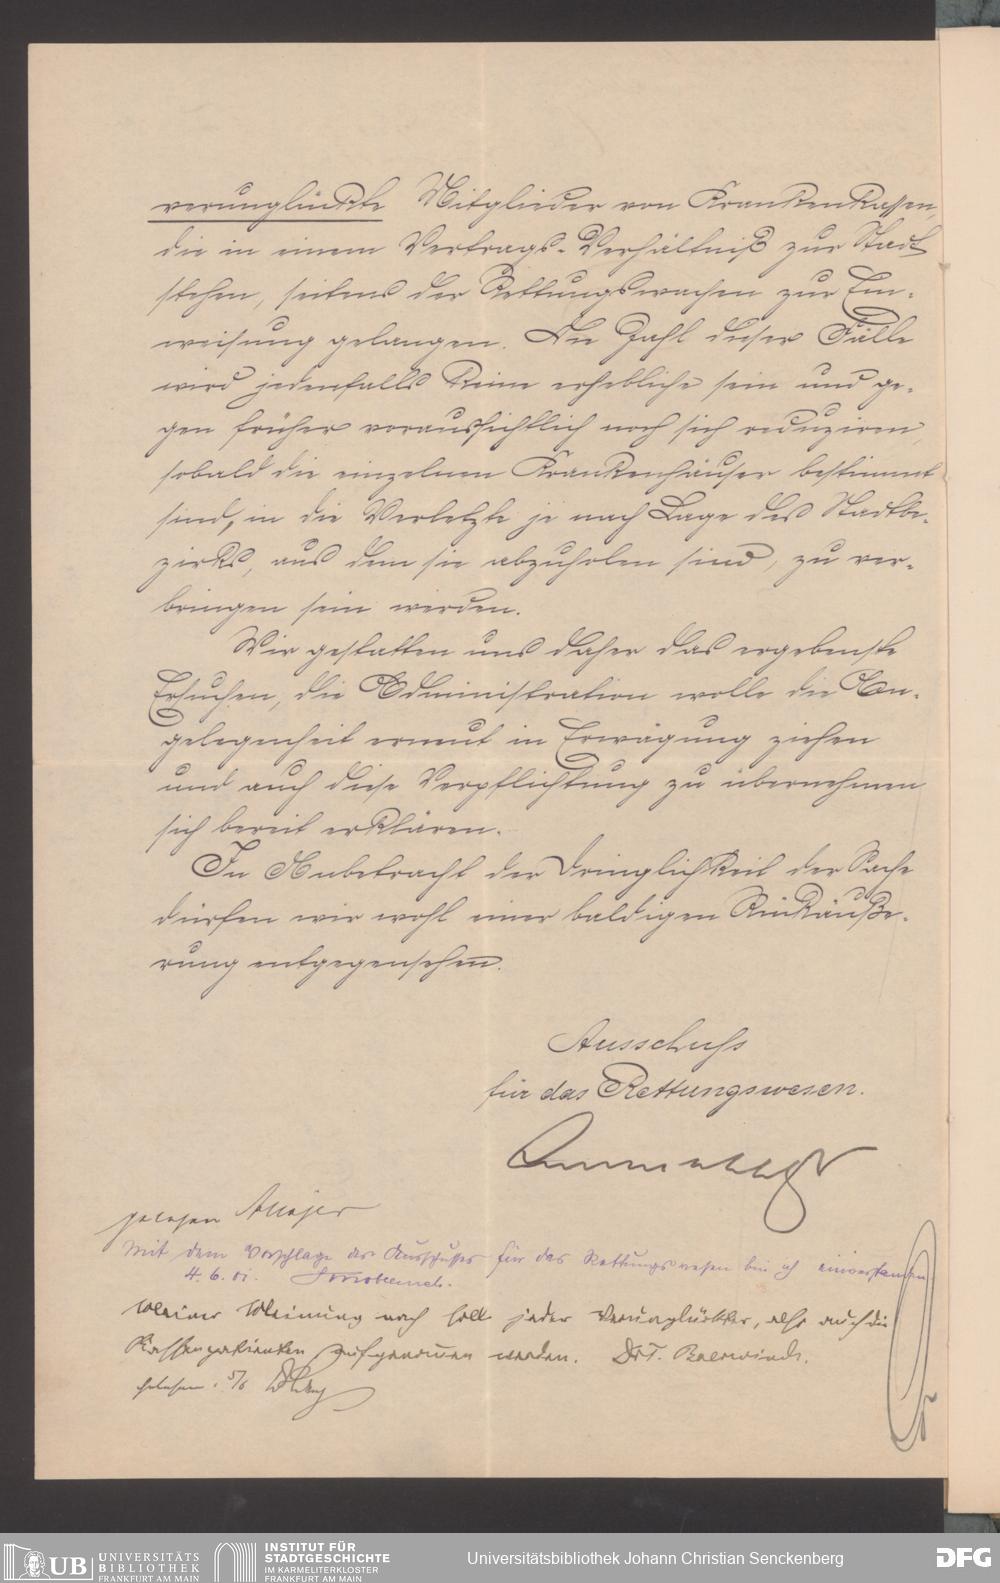 verunglückte Mitglieder von Krankenkassen,
die in einem Vertrags-Verhältniß zur Stadt
stehen, seitens der Rettungswachen zur Ein-
weisung gelangen. Die Zahl dieser Fälle
wird jedenfalls keine erhebliche sein und ge-
gen früher voraussichtlich noch sich reduziren,
sobald die einzelnen Krankenhäuser bestimmt
sind, in die Verletzte je nach Lage des Stadtbe-
zirks, aus dem sie abzuholen sind, zu ver-
bringen sein werden.
Wir gestatten uns daher das ergebenste
Ersuchen, die Administration wolle die An-
gelegenheit erneut in Erwägung ziehen
und auch diese Verpflichtung zu übernehmen
sich bereit erklären.
In Anbetracht der Dringlichkeit der Sache
dürfen wir wohl einer baldigen Rückäuße-
rung entgegensehen.
Ausschuss
für das Rettungswesen.
gelesen
Mit dem Vorschlage des Ausschusses für das Rettungswesen bin ich einverstanden
4. 6. 01.
Meiner Meinung nach soll jeder Verunglückter, also auch die
Kassenpatienten aufgenommen werden. Dr T. Baerwindt.
gelesen. 5/6
UB UNIVERSITÄTS
BIBLIOTHEK
FRANKFURT AM MAIN
INSTITUT FÜR
STADTGESCHICHTE
IM KARMELITERKLOSTER
FRANKFURT AM MAIN
Universitätsbibliothek Johann Christian Senckenberg
DFG